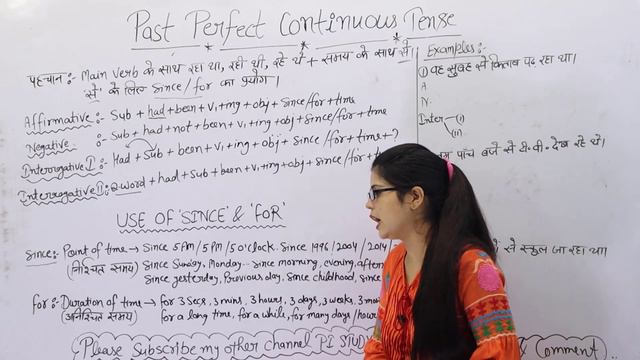 Past Perfect Continuous Tense
पहचान :- Main Verb के साथ रहा था, रही थी, रहे थे + समय के साथ से।
'से' के लिए since / for का प्रयोग।
Affirmative :- Sub + had + been + V₁ + ing + obj + since/for + time
Negative :- Sub + had + not + been + V₁ + ing + obj + since / for + time
Interrogative I :- Had + Sub + been + V₁ + ing + obj + since / for + time + ?
Interrogative II :- Q.word + had + sub + been + V₁ + ing + obj + since/for +
USE OF 'SINCE' & 'FOR'
Since :- Point of time → Since 5 AM / 5 PM / 5 O'clock. Since 1996 / 2004 / 2014
(निश्चित समय) Since Sunday, Monday... since morning, evening,
Since yesterday, Previous day, Since childhood, since
for :- Duration of time → for 3 secs, 3 mins, 3 hours, 3 days, 3 weeks, 3
(अनिश्चित समय) for a long time, for a while, for many days / hours
Please Subscribe my other channel PI STUDY
& Comment..
Examples :-
① वह सुबह से किताब पढ़ रहा था।
A
N.
Inter (i)
(ii)
पाँच बजे से टी.वी. देख रहे थे।
से स्कूल जा रहा था।